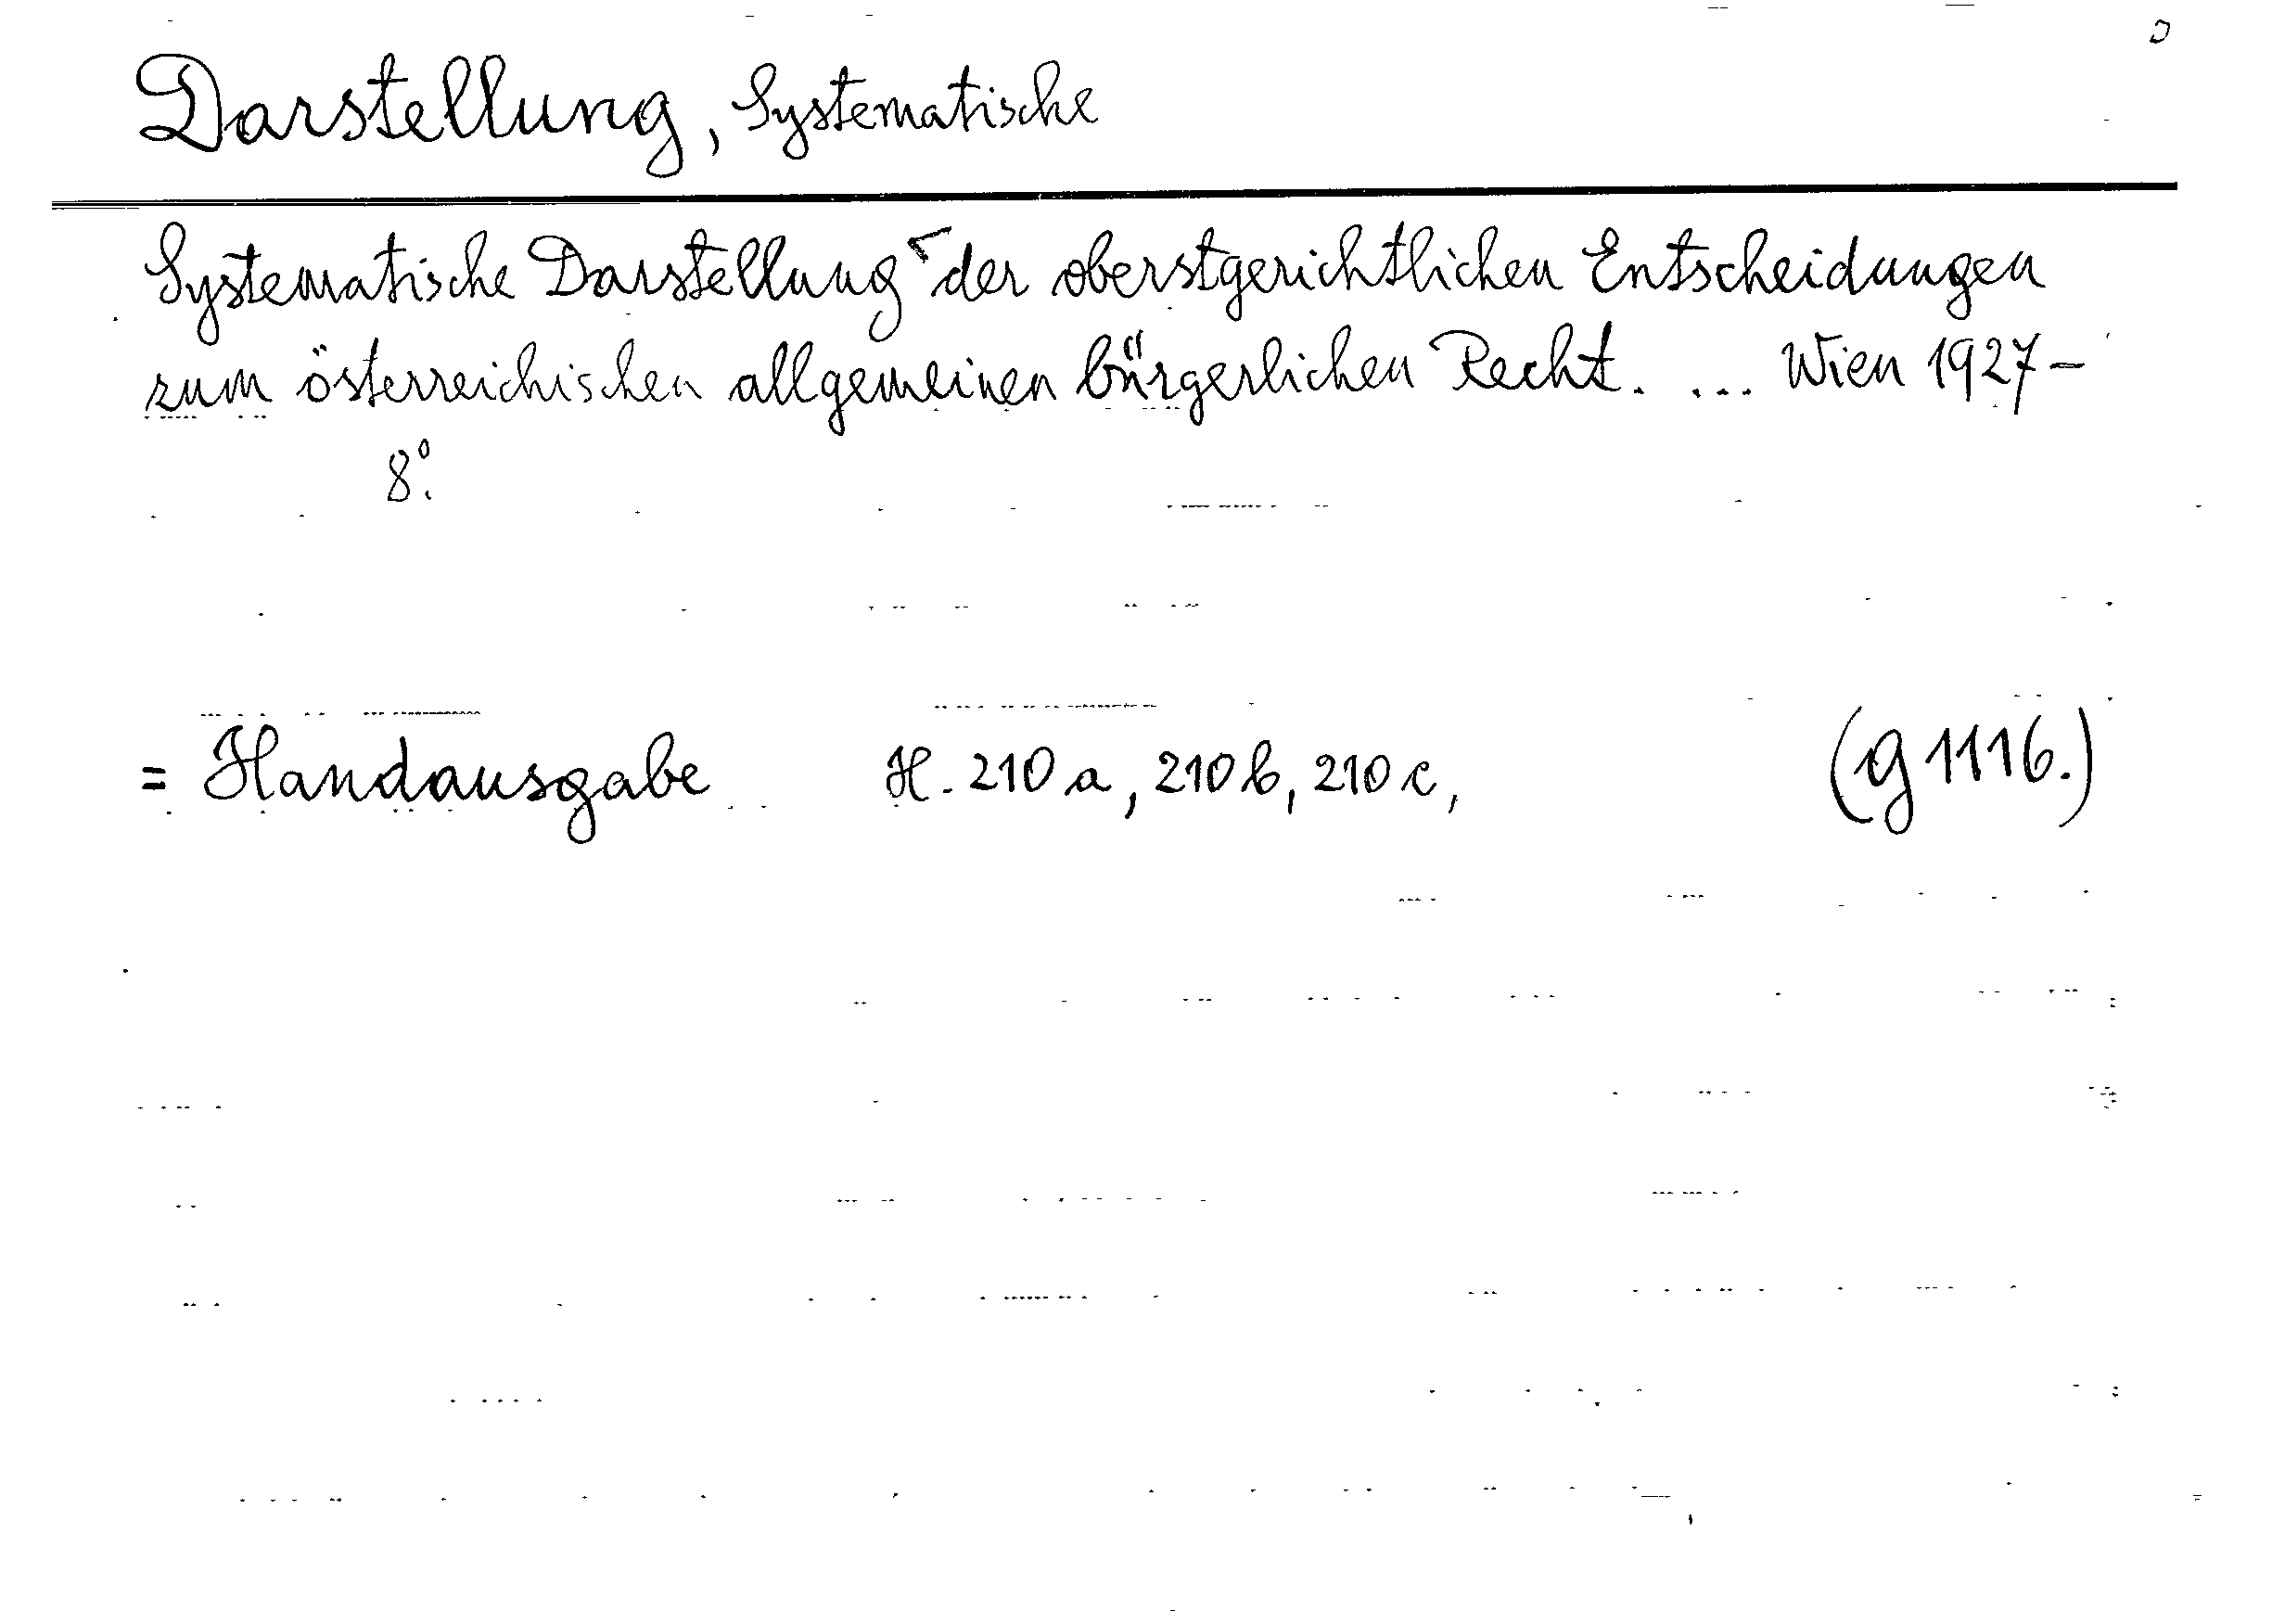 Darstellung, Systematische
Systematische Darstellung der oberstgerichtlichen Entscheidungen
zum österreichischen allgemeinen bürgerlichen Recht. ... Wien 1927-
8°.
= Handausgabe H. 210 a, 210 b, 210 c, (g 1116.)